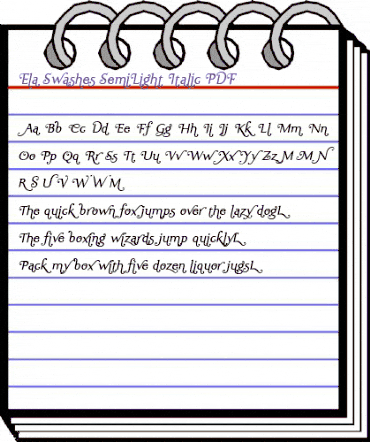 Ela Swashes SemiLight Italic PDF
Aa Bb Cc Dd Ee Ff Gg Hh Ii Jj Kk Ll Mm Nn
Oo Pp Qq Rr Ss Tt Uu Vv Ww Xx Yy Zz M M N
R S U V W W M
The quick brown fox jumps over the lazy dogL
The five boxing wizards jump quicklyL
Pack my box with five dozen liquor jugsL